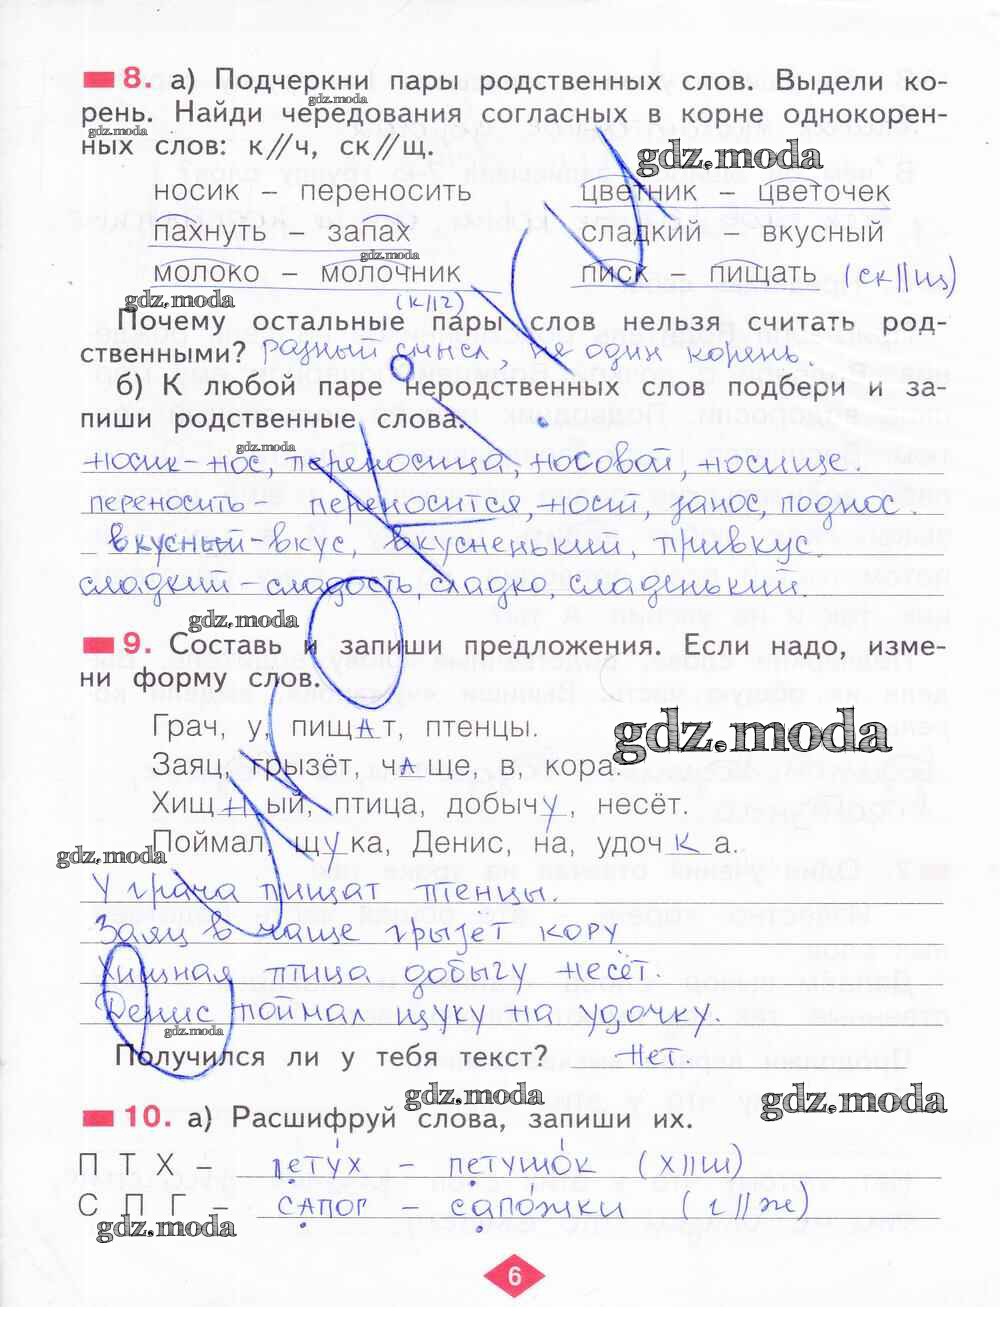 8. а) Подчеркни пары родственных слов. Выдели ко-
gdz.moda
рень. Найди чередования согласных в корне однокорен-
gdz.moda
ных слов: к//ч, ск//щ.
gdz.moda
носик – переносить цветник – цветочек
пахнуть – запах сладкий – вкусный
gdz.moda
молоко – молочник писк – пищать (ск||щ)
gdz.moda (к||ч)
Почему остальные пары слов нельзя считать род-
ственными? разный смысл, не один корень.
б) К любой паре неродственных слов подбери и за-
пиши родственные слова.
gdz.moda
носик – нос, переносица, носовой, носище.
переносить – переносится, носит, занос, поднос.
вкусный – вкус, вкусненький, привкус.
сладкий – сладость, сладко, сладенький.
gdz.moda
9. Составь и запиши предложения. Если надо, изме-
ни форму слов.
Грач, у, пищАт, птенцы.
gdz.moda
Заяц, грызёт, чАще, в, кора.
Хищный, птица, добычу, несёт.
Поймал, щука, Денис, на, удочка.
gdz.moda
У грача пищат птенцы.
Заяц в чаще грызёт кору
Хищная птица добычу несёт.
Денис поймал щуку на удочку.
gdz.moda
Получился ли у тебя текст? Нет.
gdz.moda
gdz.moda
10. а) Расшифруй слова, запиши их.
П Т Х – петух – петушок (х||ш)
С П Г – сапог – сапожки (г||ж)
gdz.moda
6